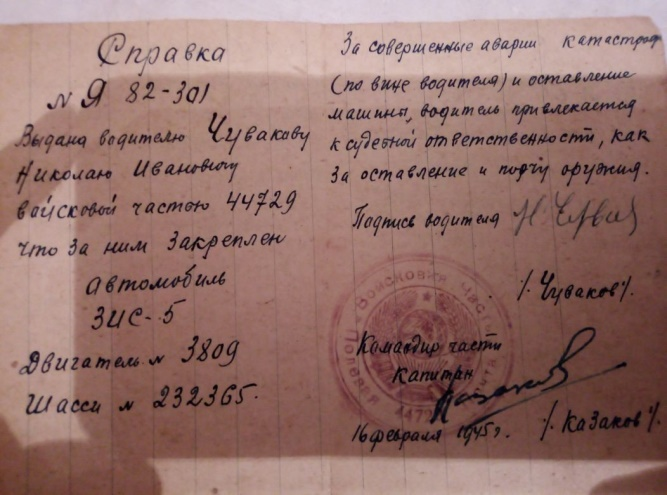 Справка
№ Я 82-301
Выдана водителю Чувакову
Николаю Ивановичу
войсковой частью 44729
что за ним закреплен
автомобиль
ЗИС-5
Двигатель № 3809
Шасси № 232365.
За совершенные аварии катастроф
(по вине водителя) и оставление
машины, водитель привлекается
к судебной ответственности, как
за оставление и порчу оружия.
Подпись водителя
/. Чуваков /.
Командир части
Капитан
Казаков
16 февраля 1945 г. /. Казаков /.
Войсковая часть
Полевая почта